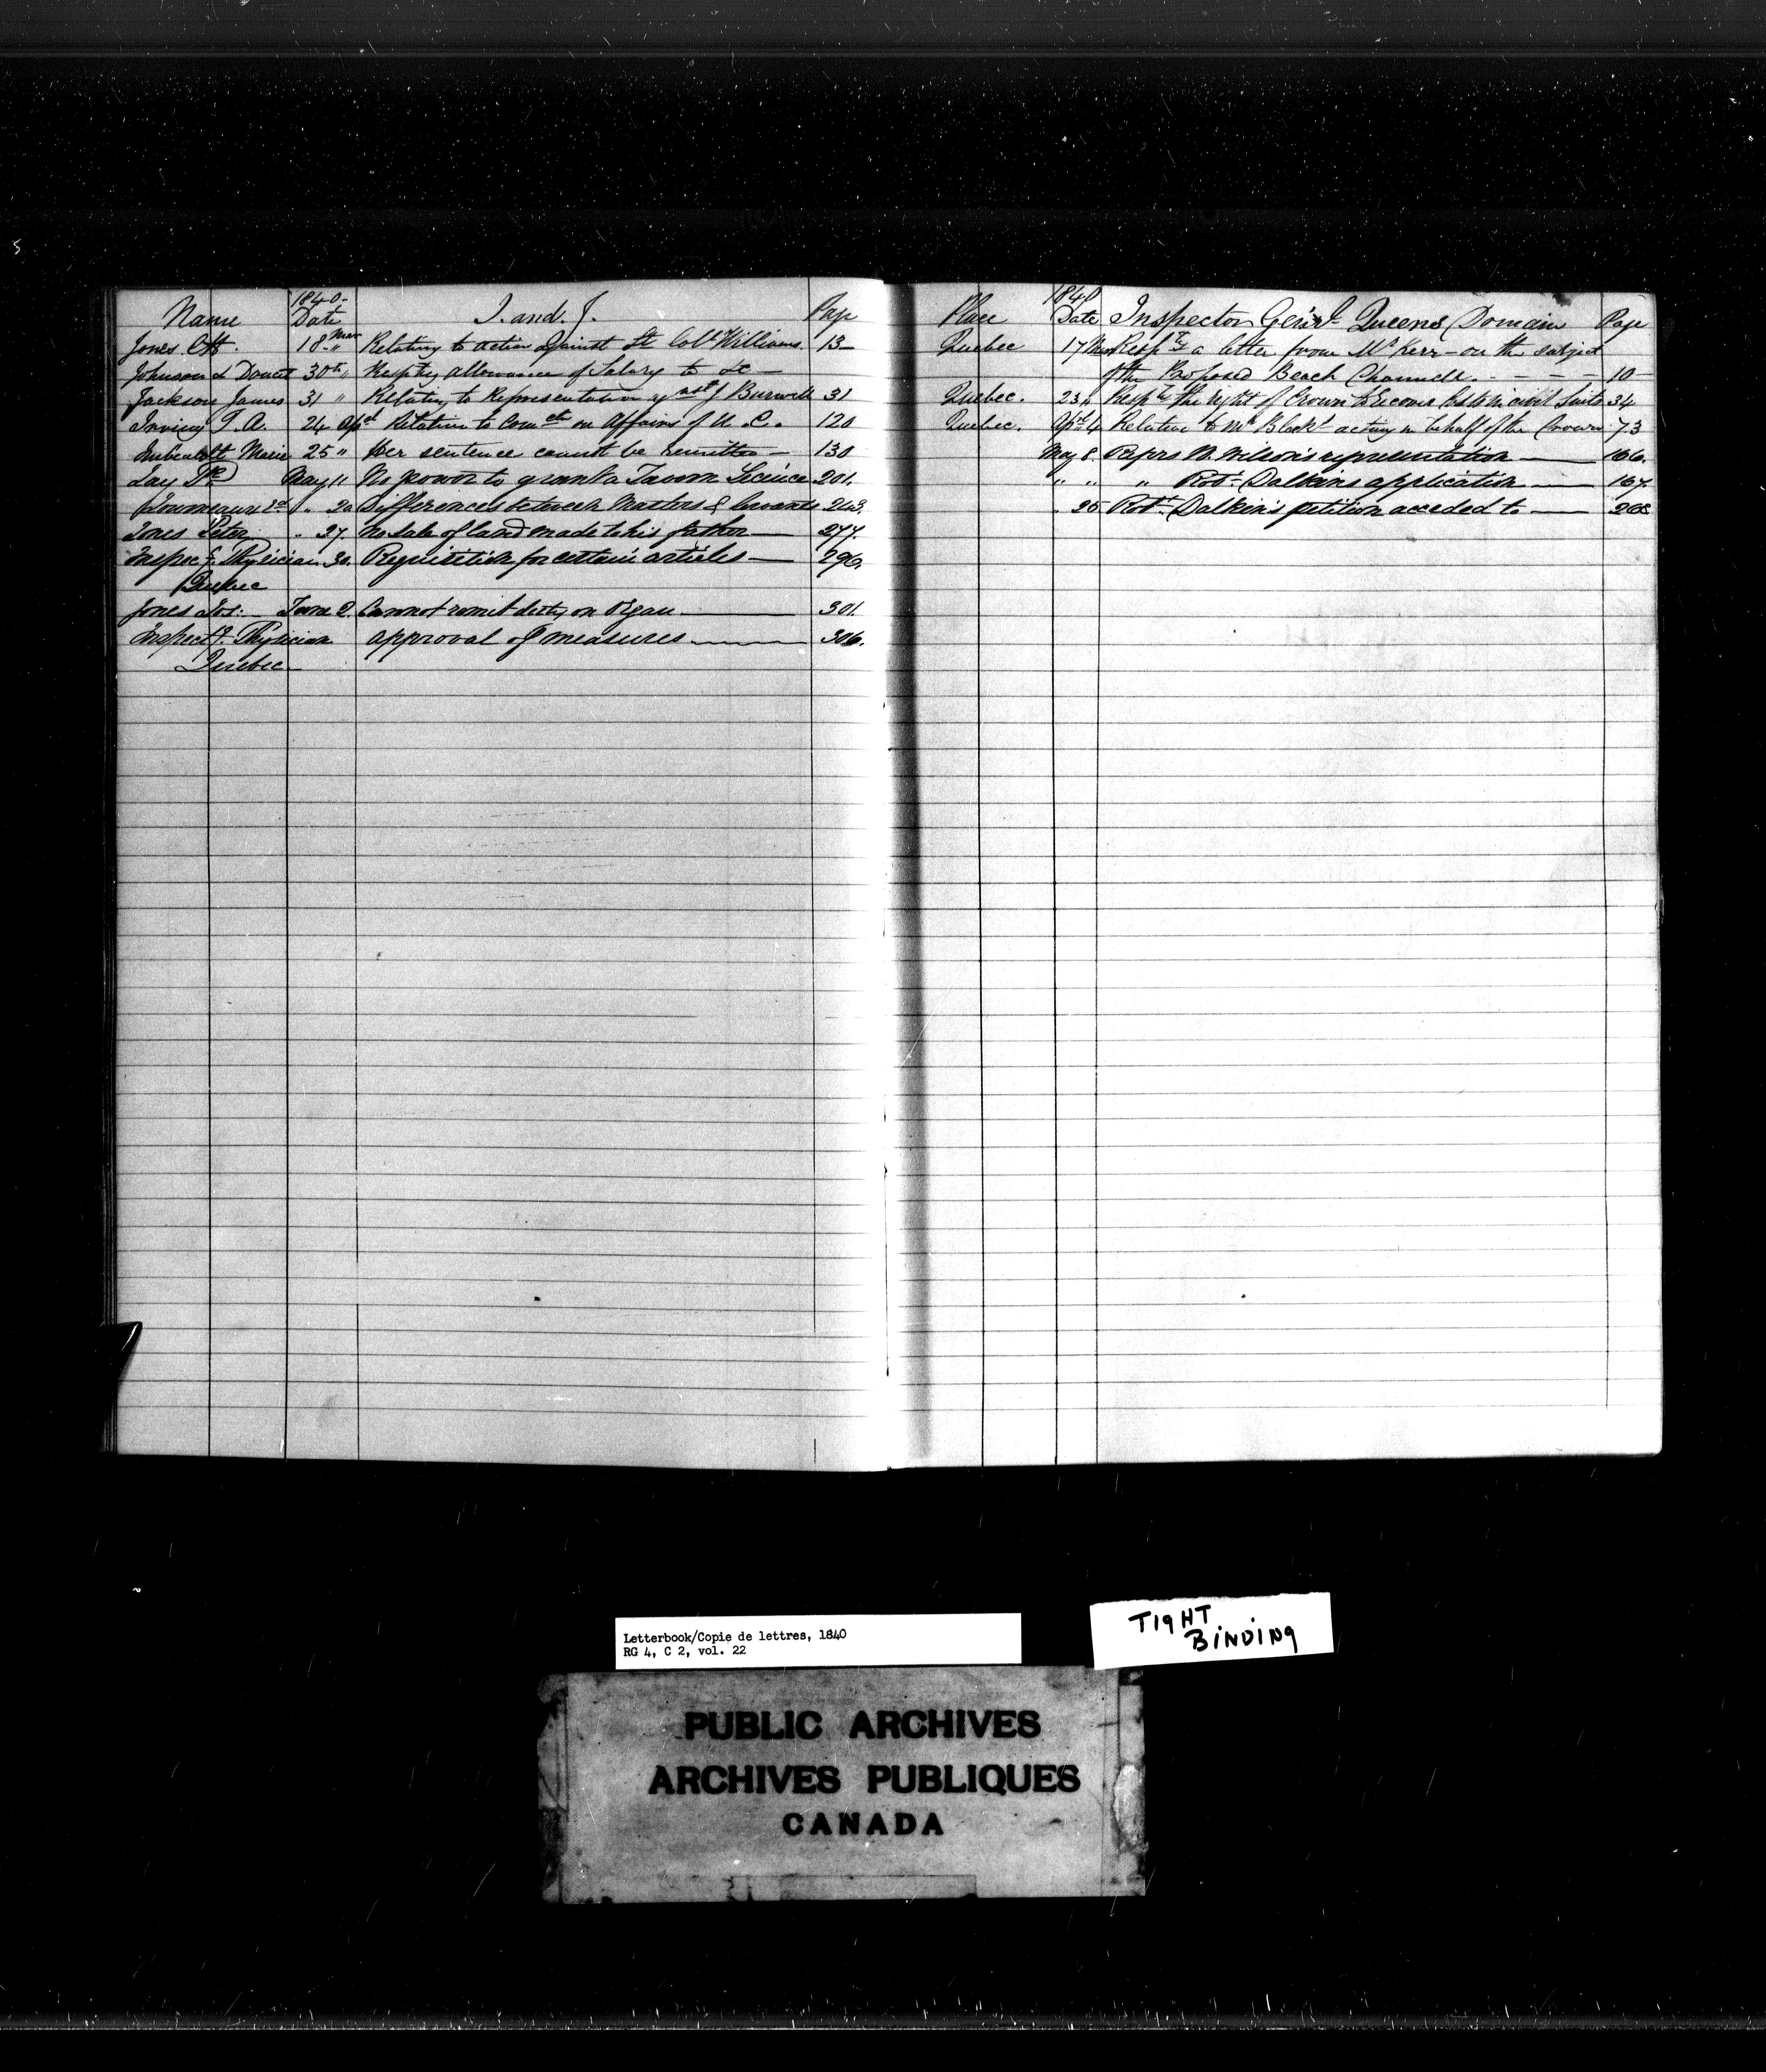 1840-
Name Date I. and. J. Page
Jones 18 Mar " Relating to action against Lt Coll Williams. 13-
Johnson & Doucet 30th " Respting allowance of Salary to &c -
Jackson James 31 " Relating to Representation agnst J Burwell 31
Irving J. A. 24 Apl Relative to Comctn on Affairs of U. C. 120
Marie 25 " Her sentence cannot be remitted - 130
Jay Dr May 11 No power to grant a Tavern Licence 201.
" 20 Differences between Masters & Servants 243.
Jones Peter " 27. No sale of land made to his father 277.
Inspecg. Physician 30. Requisition for certain articles 296.
Quebec
Jones Jos: June 2. Cannot remit duty on Organ 301.
Inspectg. Physician approval of measures 306.
Quebec
1840
Place Date Inspector Genl Queens Domain Page
Quebec 17 Mar Respg a letter from Mr Kerr - on the subject
of the Proposed Beach Channell. - - - - 10-
Quebec. 23 " Respg the right of Crown to Costs in civil Suits 34
Quebec. Apl 4 Relative to Mr Black acting in behalf of the Crown 73
May 8. Refers W. Wilson's representation 166.
" " " Robt. Dalkins application 167.
25 Robt. Dalkin's petition acceded to
Letterbook/Copie de lettres, 1840
RG 4, C 2, vol. 22
TIGHT
BINDING
PUBLIC ARCHIVES
ARCHIVES PUBLIQUES
CANADA